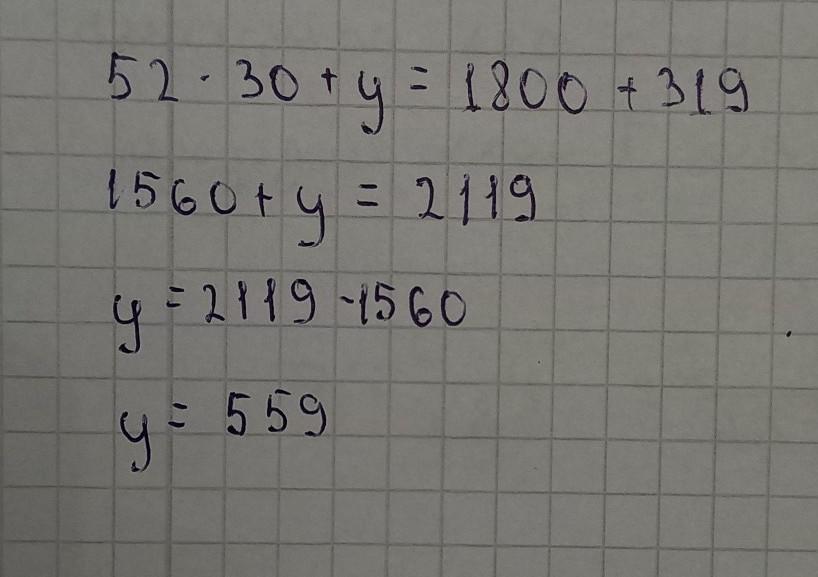 52 · 30 + y = 1800 + 319
1560 + y = 2119
y = 2119 - 1560
y = 559